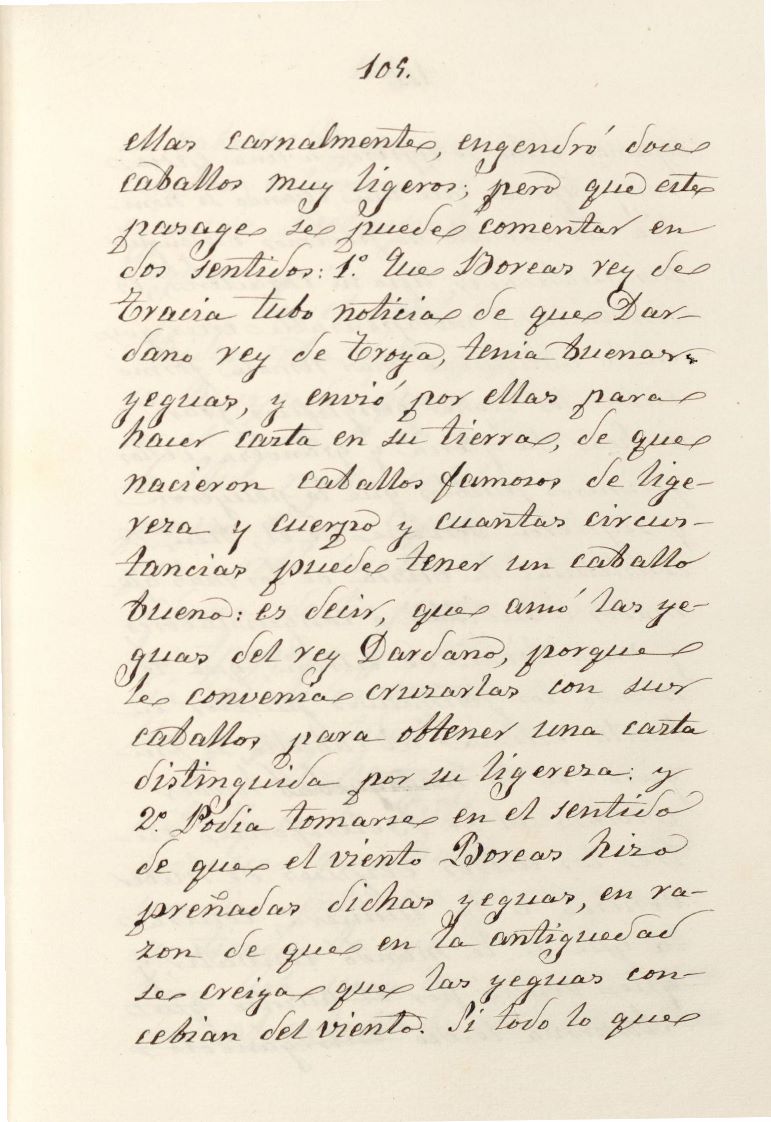 105.
ellas carnalmente, engendró doce
caballos muy ligeros; pero que este
pasage se puede comentar en
dos sentidos: 1.º Que Boreas rey de
Tracia tubo noticia de que Dar-
dano rey de Troya, tenia buenas
yeguas, y envió por ellas para
hacer casta en su tierra, de que
nacieron caballos famosos de lige-
reza y cuerpo y cuantas circus-
tancias puede tener un caballo
bueno: es decir, que amó las ye-
guas del rey Dardano, porque
le convenia cruzarlas con sus
caballos para obtener una casta
distinguida por su ligereza: y
2.º Podia tomarse en el sentido
de que el viento Boreas hizo
preñadas dichas yeguas, en ra-
zon de que en la antiguedad
se creiya que las yeguas con-
cebian del viento. Si todo lo que